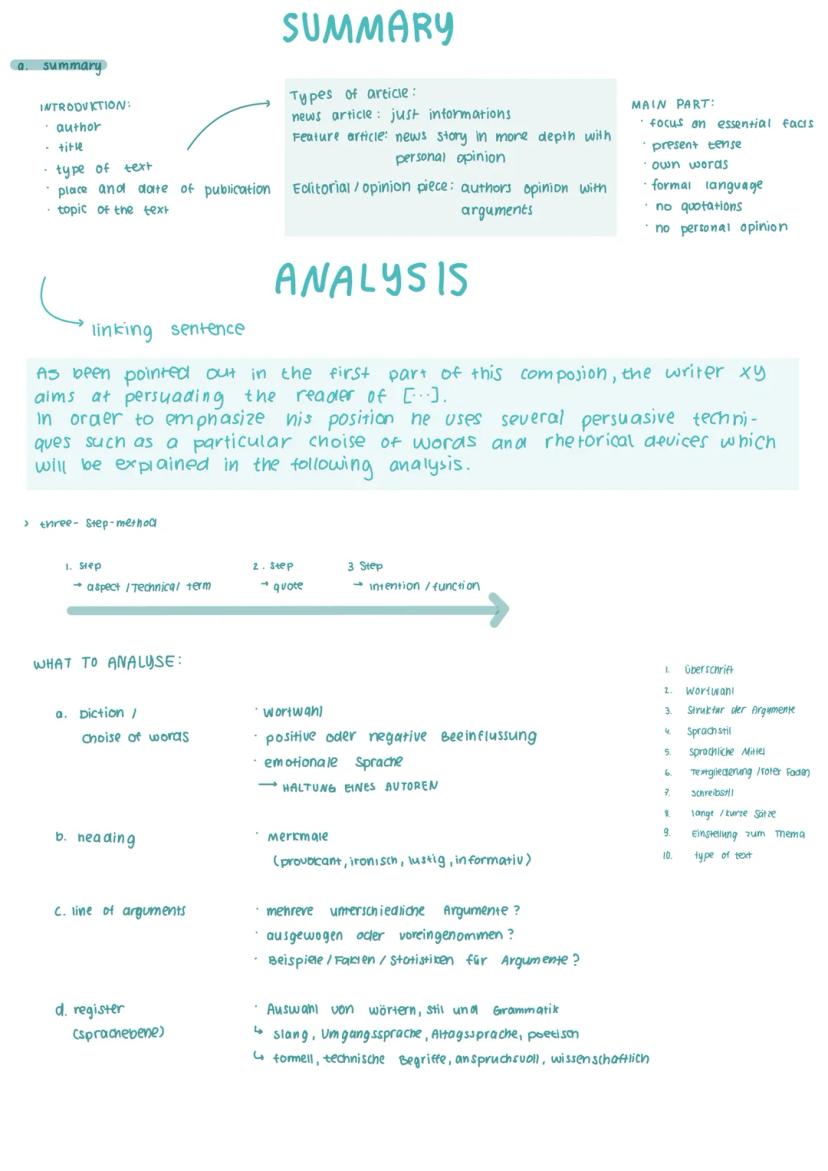 SUMMARY
a. summary
INTRODUKTION:
· author
· title
· type of text
· place and date of publication
· topic of the text
Types of article:
news article: just informations
Feature article: news story in more depth with
personal opinion
Editorial / opinion piece: authors opinion with
arguments
MAIN PART:
· focus on essential facts
· present tense
· own words
· formal language
· no quotations
· no personal opinion
ANALYSIS
linking sentence
As been pointed out in the first part of this composion, the writer xy
aims at persuading the reader of [...].
In order to emphasize his position he uses several persuasive techni-
ques such as a particular choise of words and rhetorical devices which
will be explained in the following analysis.
> three-step-method
1. Step
→ aspect / Technical term
2. Step
→ quote
3 Step
→ intention / function
WHAT TO ANALYSE:
a. Diction /
Choise of words
· Wortwahl
· positive oder negative Beeinflussung
· emotionale Sprache
→ HALTUNG EINES AUTOREN
b. heading
· Merkmale
(provokant, ironisch, lustig, informativ)
c. line of arguments
· mehrere unterschiedliche Argumente?
· ausgewogen oder voreingenommen?
· Beispiele / Fakten / Statistiken für Argumente?
d. register
(Sprachebene)
· Auswahl von wörtern, stil und Grammatik
↳ slang, Umgangssprache, Altagssprache, poetisch
↳ formell, technische Begriffe, anspruchsvoll, wissenschaftlich
1. Überschrift
2. Wortwahl
3. Struktur der Argumente
4. Sprachstil
5. Sprachliche Mittel
6. Textgliederung / roter Faden
7. Schreibstil
8. lange / kurze Sätze
9. Einstellung zum Thema
10. type of text